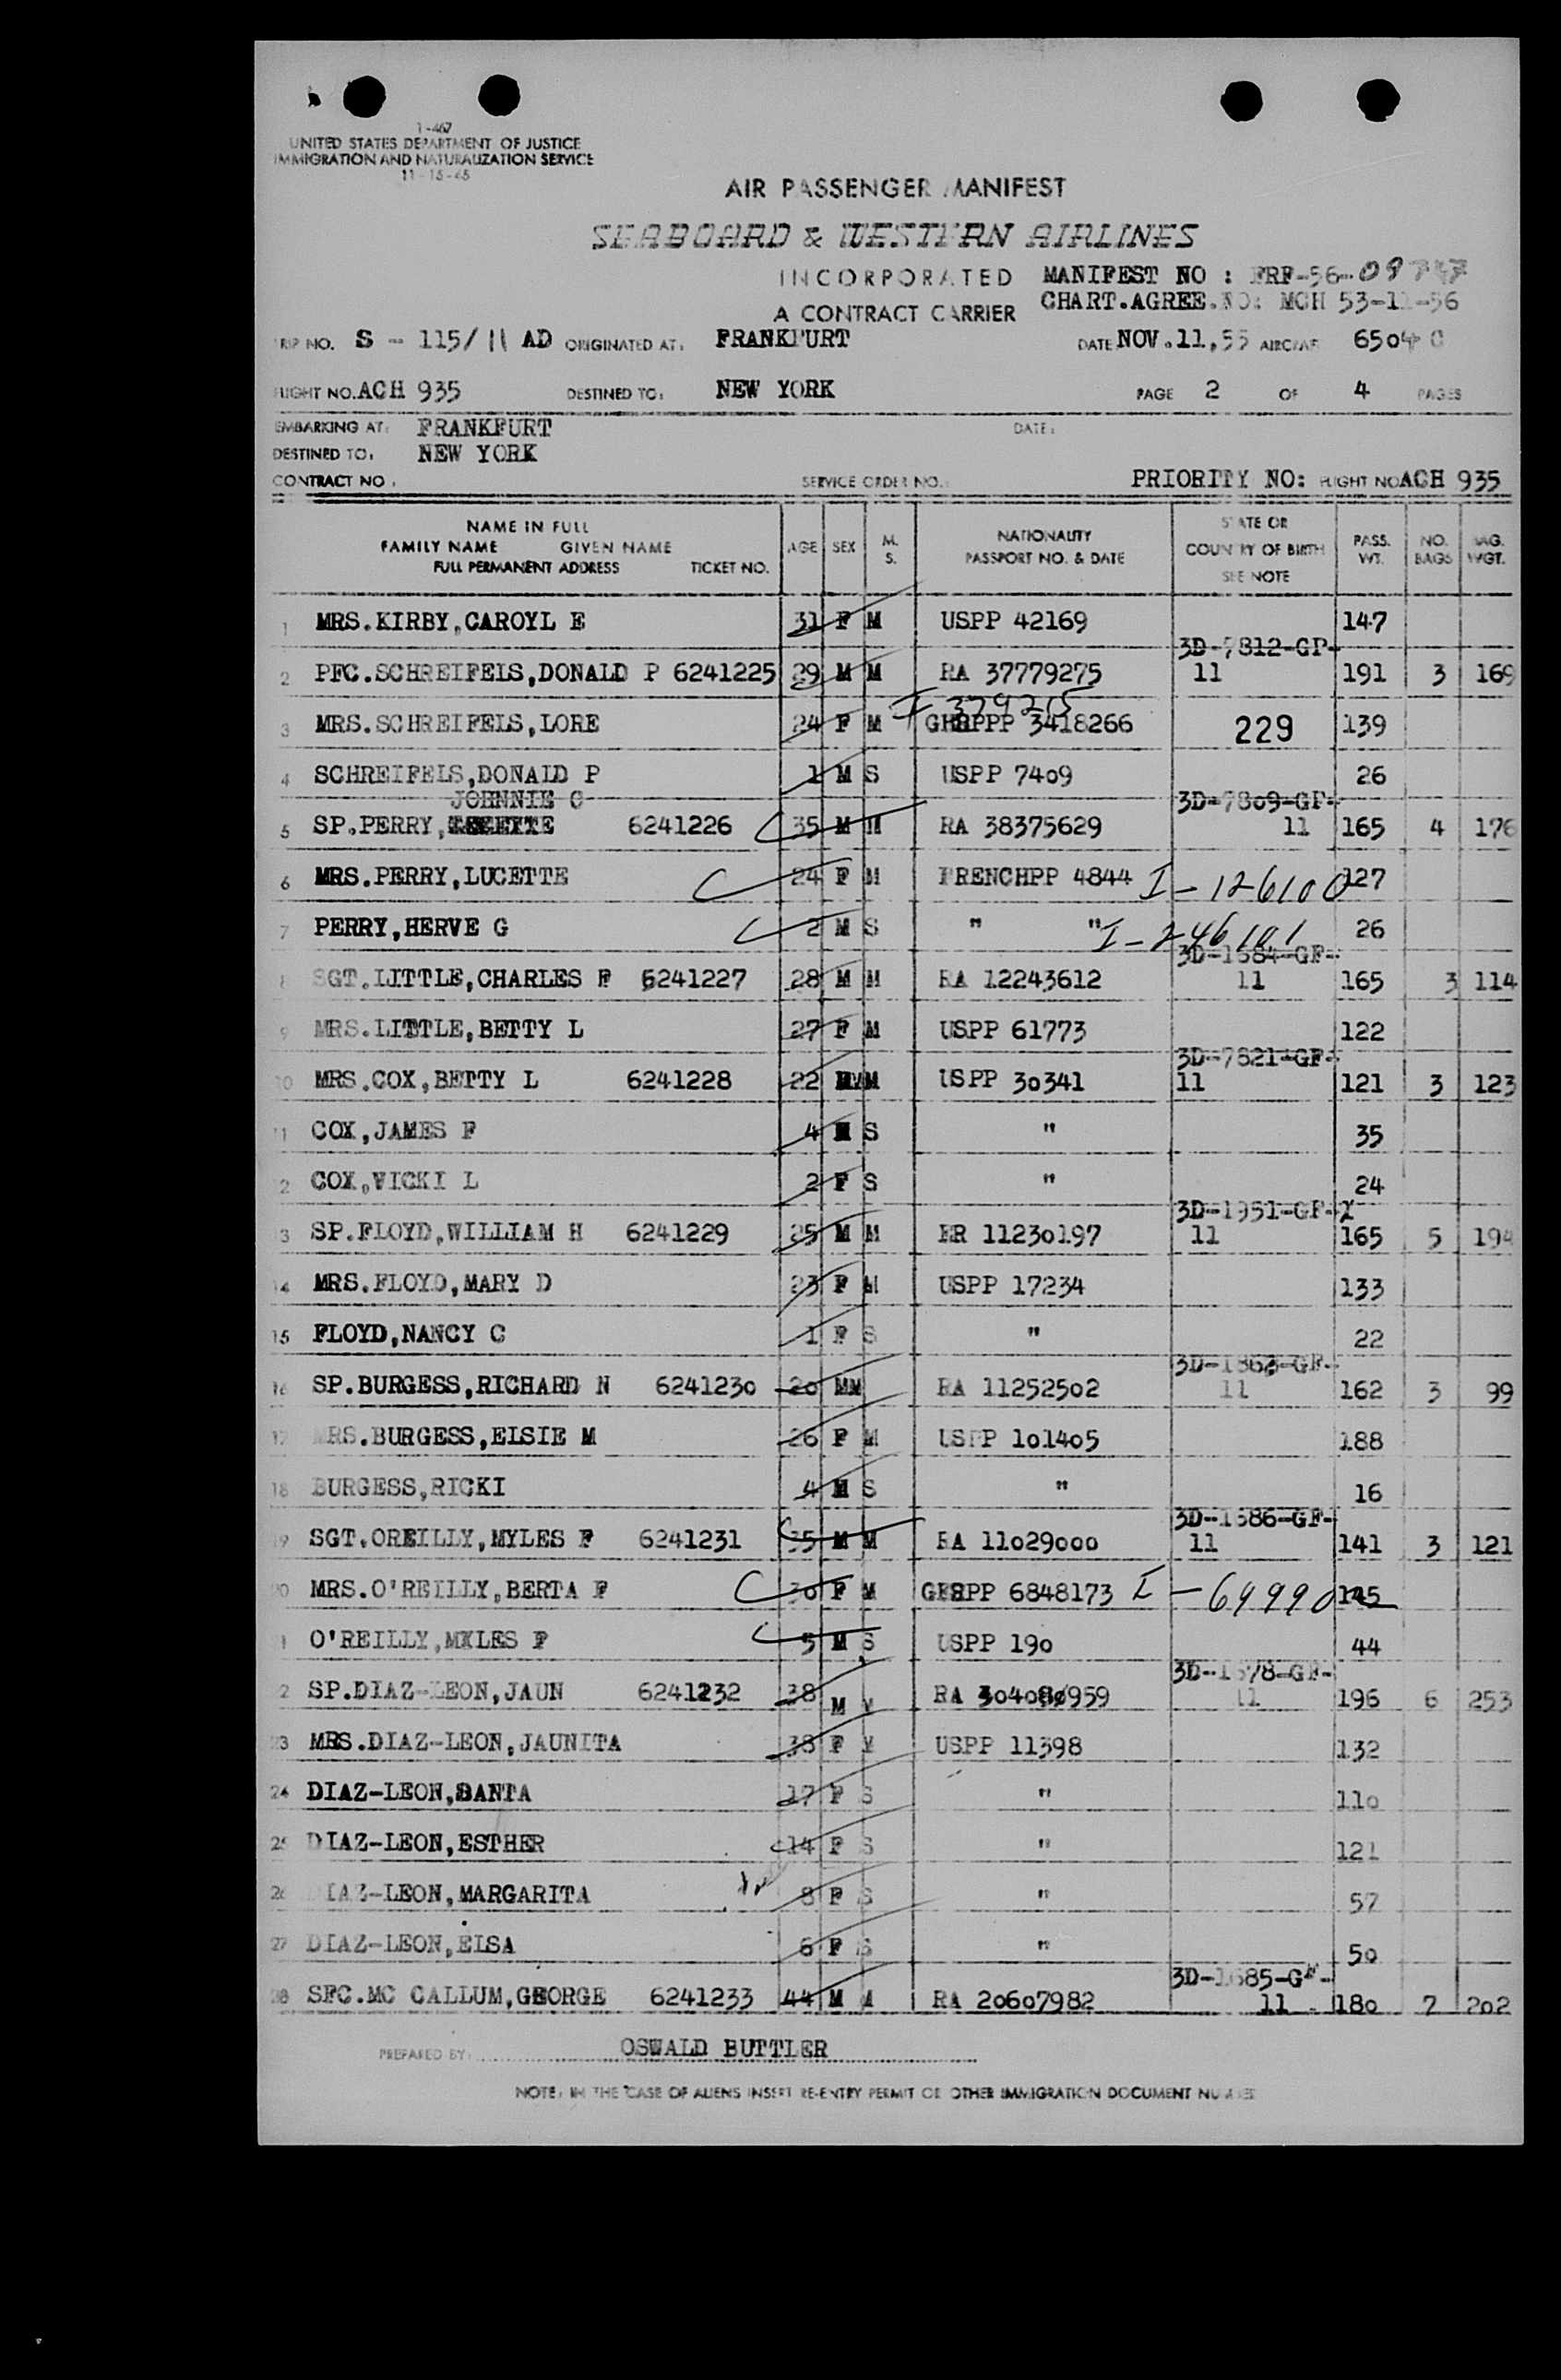 I-467
UNITED STATES DEPARTMENT OF JUSTICE
IMMIGRATION AND NATURALIZATION SERVICE
11-15-45
AIR PASSENGER MANIFEST
SEABOARD & WESTERN AIRLINES
INCORPORATED MANIFEST NO : FRF-56-
A CONTRACT CARRIER CHART.AGREE.NO: MCH 53-11-56
TRIP NO. S - 115/11 AD ORIGINATED AT: FRANKFURT DATE NOV.11,55 AIRCRAF
FLIGHT NO. ACH 935 DESTINED TO: NEW YORK PAGE 2 OF 4 PAGES
EMBARKING AT: FRANKFURT DATE:
DESTINED TO: NEW YORK
CONTRACT NO. SERVICE ORDER NO. PRIORITY NO: FLIGHT NO ACH 935
NAME IN FULL
FAMILY NAME GIVEN NAME
FULL PERMANENT ADDRESS TICKET NO.
AGE SEX M. S. NATIONALITY PASSPORT NO. & DATE STATE OR COUNTRY OF BIRTH SEE NOTE PASS. WT. NO. BAGS BAG. WGT.
1 MRS.KIRBY,CAROYL E 31 F M USPP 42169 147
3D-7812-GF-
2 PFC.SCHREIFELS,DONALD P 6241225 29 M M RA 37779275 11 191 3 169
I-379215
3 MRS.SCHREIFELS,LORE 24 F M PP 3418266 229 139
4 SCHREIFELS,DONALD P 1 M S USPP 7409 26
JOHNNIE C 3D-7809-GF-
5 SP.PERRY, 6241226 35 M M RA 38375629 11 165 4 176
6 MRS.PERRY,LUCETTE 24 F M FRENCHPP 4844 I-126100 127
7 PERRY,HERVE G 2 M S " " I-246101 26
3D-1684-GF-
8 SGT.LITTLE,CHARLES F 6241227 28 M M RA 12243612 11 165 3 114
9 MRS.LITTLE,BETTY L 27 F M USPP 61773 122
3D-7821-GF-
10 MRS.COX,BETTY L 6241228 22 M USPP 30341 11 121 3 123
11 COX,JAMES F 4 M S " 35
2 COX,VICKI L 2 F S " 24
3D-1951-GF-
3 SP.FLOYD,WILLIAM H 6241229 25 M M ER 11230197 11 165 5 194
14 MRS.FLOYD,MARY D 23 F M USPP 17234 133
15 FLOYD,NANCY C 1 F S " 22
3D-1863-GF-
16 SP.BURGESS,RICHARD N 6241230 20 MM RA 11252502 11 162 3 99
17 MRS.BURGESS,ELSIE M 26 F M USPP 101405 188
18 BURGESS,RICKI 4 M S " 16
3D-1686-GF-
19 SGT.OREILLY,MYLES F 6241231 35 M M RA 11029000 11 141 3 121
20 MRS.O'REILLY,BERTA F 30 F M PP 6848173 I-699902 145
1 O'REILLY,MYLES F 5 M S USPP 190 44
3D-1678-GF-
2 SP.DIAZ-LEON,JAUN 6241232 38 M M RA 11 196 6 253
23 MRS.DIAZ-LEON,JAUNITA 38 F M USPP 11398 132
24 DIAZ-LEON,SANTA 17 F S " 110
25 DIAZ-LEON,ESTHER 14 F S " 121
26 DIAZ-LEON,MARGARITA 8 F S " 57
27 DIAZ-LEON,ELSA 6 F S " 50
3D-1685-GF-
28 SFC.MC CALLUM,GEORGE 6241233 44 M M RA 20607982 11 180 7 202
PREPARED BY: OSWALD BUTTLER
NOTE: IN THE CASE OF ALIENS INSERT RE-ENTRY PERMIT OR OTHER IMMIGRATION DOCUMENT NUMBER